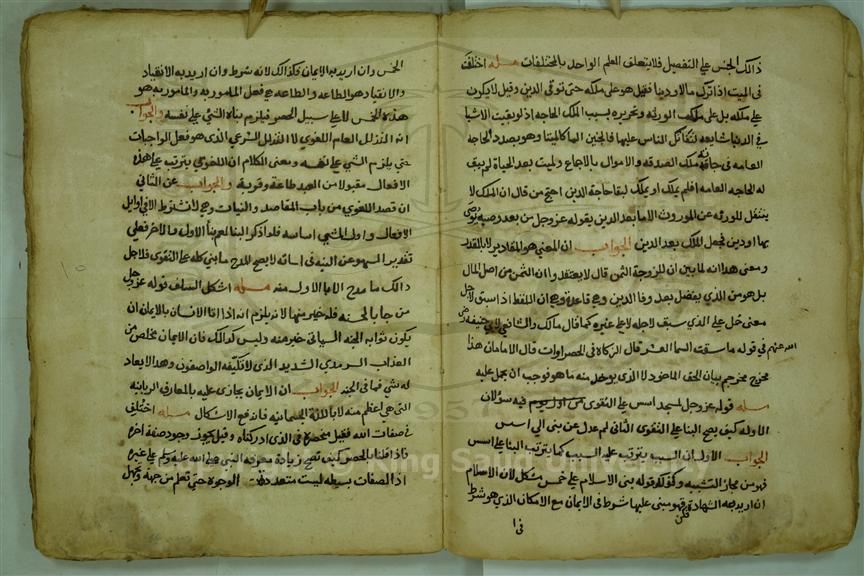 ذالك الجنس علي التفصيل فلا يتعلق العلم الواحد بالمختلفات مسله اختلف
في الميت اذا ترك مالا ودينا فقيل هو علي ملكه حتي توفي الدين وقيل لا يكون
علي ملكه بل علي ملك الورثه وتحريره بسبب الملك الحاجه اذ لو بقيت الاشيا
في الدنيا شايعه لتقاتل الناس عليها فالجنين الما كالميتا وهو بصدد الحاجه
العامه في ملك الصدقه والاموال بالاجماع والميت بعد الحياة لم يبق
له الحاجه العامه افلم يملك او يملك لبقا حاجة الدين احتج من قال ان الملك لا
ينتقل للورثه عن الموروث الا ما بعد الدين بقوله عز وجل من بعد وصيه يوصي
بها او دين فجعل الملك بعد الدين الجواب ان المعني هو المقادير لا بالمقدر
ومعني هذا انه لما بين ان للزوجة الثمن قال لا يعتقدوا ان الثمن من اصل المال
بل هو من الذي يفضل بعد وفا الدين وهي قاعدة وهي ان اللفظ اذا سبق لاجل
معني حمل علي الذي سبق لاجله لا علي غيره كما قال مالك والشافعي لابي حنيفه رضي
الله عنهم في قوله ما سقت السما العشر قال الزكاة في الخضراوات قال الامامان هذا
خرج مخرج بيان الحق الماخوذ لا الذي يوخذ منه ما هو فوجب ان يحمل عليه
مسله قوله عز وجل لمسجد اسس علي التقوي من اول يوم فيه سؤلان
الاول كيف يصح البنا علي التقوي الثاني لم عدل عن بني الي اسس
الجواب الاول ان السبب يترتب عليه السبب كما يترتب البنا علي اسس
فهو من مجاز التشبيه وكقوله قوله بني الاسلام علي خمس مشكل لان الاسلام
ان اريد به الشهادة فهو مبني عليها شرط في الايمان مع الامكان الذي هو شرط
في ا
الخمس وان اريد به الايمان فكذالك لانه شرط وان اريد به الانقياد
والانقياد هو الطاعه والطاعه هي فعل المامور به والمامور به هو
هذه الخمس لا علي سبيل الحصر فيلزم بناة الشي علي نفسه والجواب
انه التذلل العام اللغوي لا التذلل الشرعي الذي هو فعل الواجبات
حتي يلزم الشي علي نفسه ومعني الكلام ان اللغوي يترتب علي هذه
الافعال مقبولا من العبد طاعة وقربة والجواب عن الثاني
ان قصد اللغوي من باب المقاصد والنيات وهي لا تشترط الا في اوايل
الافعال واول الشي اساسه فلو اذكر البنا لعم البنا الاول والاخر فعلي
تقدير السهو عن النيه في اثنائه لا يصح المدح ما بني كله علي التقوي فلاجل
ذالك ما مدح الا بالاول منه مسله اشكل السلف قوله عز وجل
من جا بالحسنه فله خير منها لانه يلزم انه اذا اتا الانسان بالايمان ان
يكون ثوابه الجنه خير منه وليس كذالك فان الايمان يخلص من
العذاب السرمدي الشديد الذي لا تكيفه الواصفون وهذا لا يعاد
له شي مما في الجنه الجواب ان الايمان يجازي عليه بالمعارف الربانيه
التي هي اعظم منه لا باللذة الجثمانيه فاندفع الاشكال مسله اختلف
في صفات الله فقيل منحصره في الذي ادركناه وقيل يجوز وجود صفة اخره
فاذا قلنا بالحصر كيف تصح زيادة معرفه النبي صلي الله عليه وسلم علي غيره
اذ الصفات بسيطه ليست متعددة الوجوه حتي تعلم من جهة وتجهل